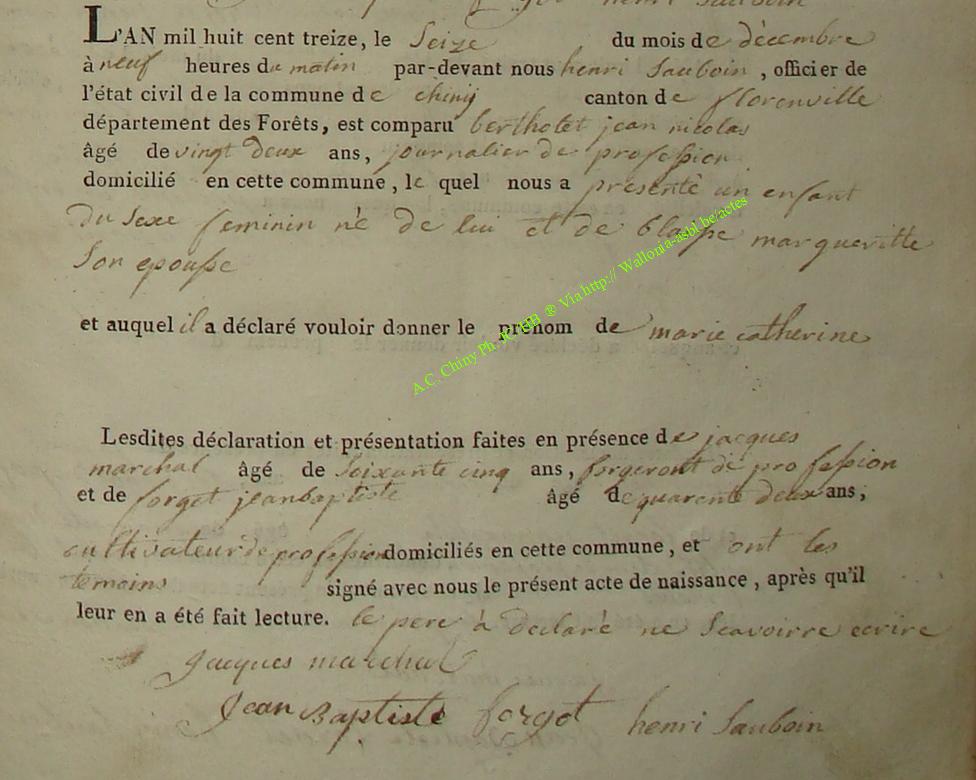 henri Sauboin
L'AN mil huit cent treize, le Seize du mois de décembre
à neuf heures du matin par-devant nous henri Sauboin, officier de
l'état civil de la commune de chiny canton de florenville
département des Forêts, est comparu berthotet jean nicolas
âgé de vingt deux ans, journalier de profession
domicilié en cette commune, le quel nous a presenté un enfant
du Sexe feminin né de lui et de blaise margueritte
Son epouse
et auquel il a déclaré vouloir donner le prénom de marie catherine
A.C. Chiny Ph. JC HB ® Via http:// Wallonia-asbl.be/actes
Lesdites déclaration et présentation faites en présence de jacques
marchal âgé de Soixante cinq ans, forgeront de profession
et de forget jeanbaptiste âgé de quarente deux ans,
cultivateur de profession domiciliés en cette commune, et ont les
temoins signé avec nous le présent acte de naissance, après qu'il
leur en a été fait lecture. le pere à declaré ne Scavoirre ecrire
Jacques marchal
Jean Baptiste forget henri Sauboin